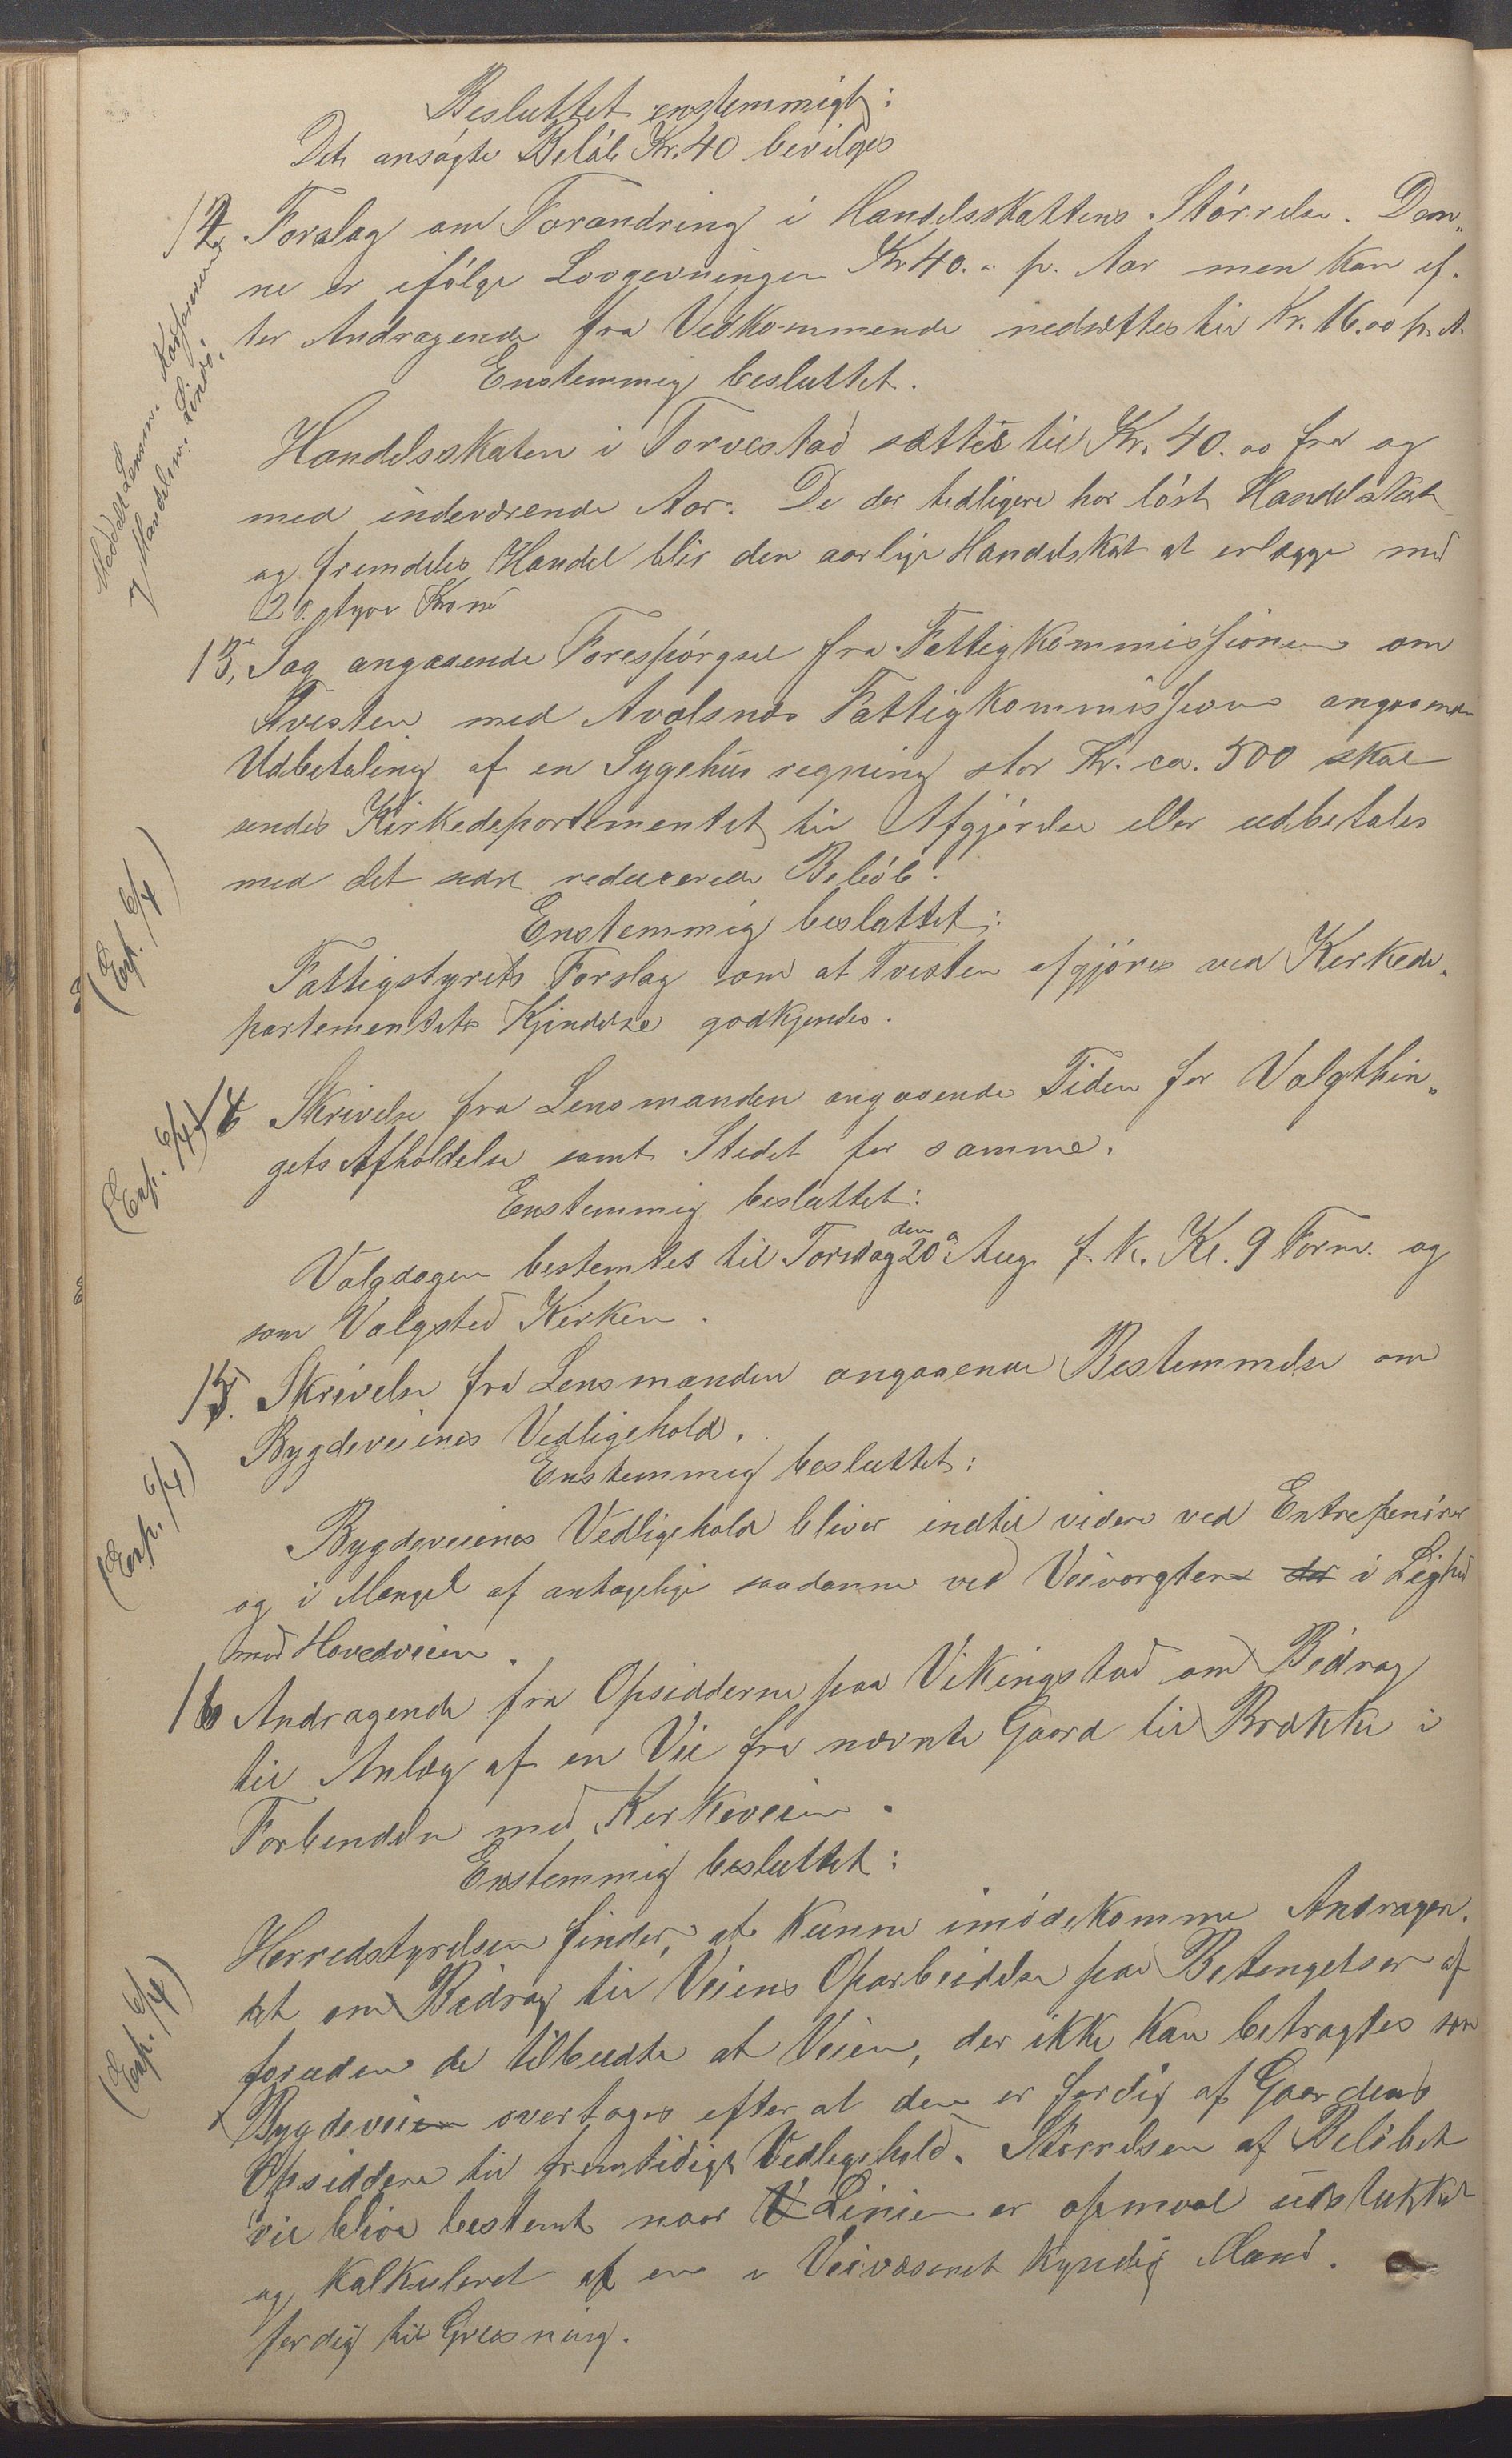 Besluttet enstemmigt:
Det ansøgte Beløb Kr. 40 bevilges
12, Forslag om Forandring i Handelsskattens Størrelse. Den„
ne er ifølge Lovgevningen Kr 40. " pr. Aar men kan ef„
ter Andragende fra Vedkommende nedsættes til Kr. 16.00 pr. A.
Enstemmig besluttet.
Meddelt Lensm.
og Handelsm. Lindø.
Handelsskaten i Torvestad sættes til Kr. 40.00 fra og
med indeværende Aar. De der tidligere har løst Handelskat
og fremdeles Handel blir den aarlige Handelskat at erlægge med
20. tyve Kroner
13, Sag angaaende Forespørgsel fra Fattigkommissionen om
Tvisten med Avalsnæs Fattigkommission angaaende
Udbetaling af en Sygehus regning stor Kr. ca. 500 skal
sendes Kirkedepartementet til Afgjørelse eller udbetales
med det reducerede Beløb.
Enstemmig besluttet:
(Exp. 6/4)
Fattigstyrets Forslag om at Tvisten afgjøres ved Kirkede„
partementets Kjendelse godkjendes.
(Exp. 6/4)
14 Skrivelse fra Lensmanden angaaende Tiden for Valgthin„
gets Afholdelse samt Stedet for samme.
Enstemmig besluttet:
Valgdagen bestemtes til Torsdag den 20 Aug. f. k. Kl. 9 Form. og
som Valgsted Kirken.
15. Skrivelse fra Lensmanden angaaende Bestemmelse om
Bygdeveienes Vedligehold.
Enstemmig besluttet:
(Exp. 6/4)
Bygdeveienes Vedligehold bliver indtil videre ved Entreprenører
og i Mangel af antagelige saadanne ved Veivogtere der i Lighed
med Hovedveien.
16 Andragende fra Opsidderne paa Vikingstad om Bidrag
til Anlæg af en Vei fra nævnte Gaard til Brække i
Forbindelse med Kirkeveien.
Enstemmig besluttet:
(Exp. 6/4)
Herredstyrelsen finder at kunne imødekomme Andragen„
det om Bidrag til Veiens Oparbeidelse paa Betingelser af
foruden de tilbudte at Veien, der ikke kan betragtes som
Bygdeveien overtages efter at den er færdig af Gaardens
Opsiddere til fremtidigt Vedligehold. Størrelsen af Beløbet
vil blive bestemt naar V Linien er opmaal udstukket
og kalkuleret af en i Veivæsenet kyndig Mand.
færdig til Grusning.